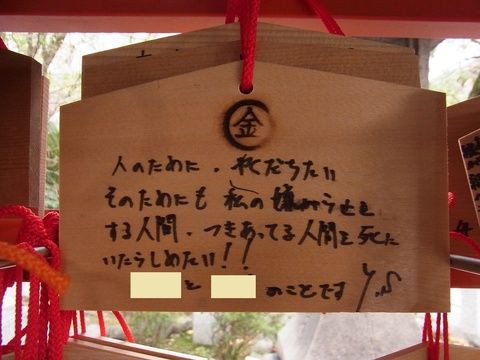 金
人のために、だちたい
そのためにも 私の嫌がらせを
する人間、つきあってる人間を死に
いたらしめたい!!
と のことです Y.S